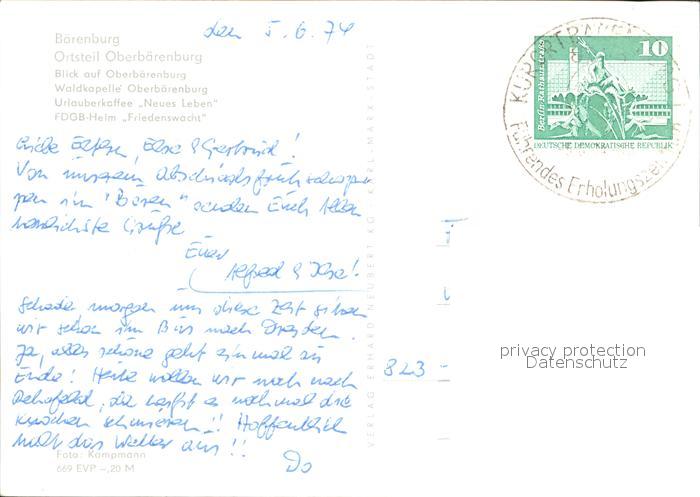 den 5.6.74
Bärenburg
Ortsteil Oberbärenburg
Blick auf Oberbärenburg
Waldkapelle Oberbärenburg
Urlauberkaffee „Neues Leben"
FDGB-Heim „Friedenswacht"
Liebe Eltern, Else & Gertrud!
Von unserem Abschiedsfrühschop
pen im "Bären" senden Euch allen
herzlichste Grüße
Euer
Alfred & Ilse!
Schade, morgen um diese Zeit sitzen
wir schon im Bus nach Dresden.
Ja, alles schöne geht einmal zu
Ende! Heute wollen wir noch nach
Rehefeld, da heißt es nochmal die
Knochen schmieren!! Hoffentlich
hält das Wetter aus!!
Do
Foto: Kampmann
669 EVP -,20 M
VERLAG ERHARD NEUBERT KG KARL-MARX-STADT
823
10
Berlin, Rathausstraße
DEUTSCHE DEMOKRATISCHE REPUBLIK
KURORT
Führendes Erholungszentrum
privacy protection
Datenschutz